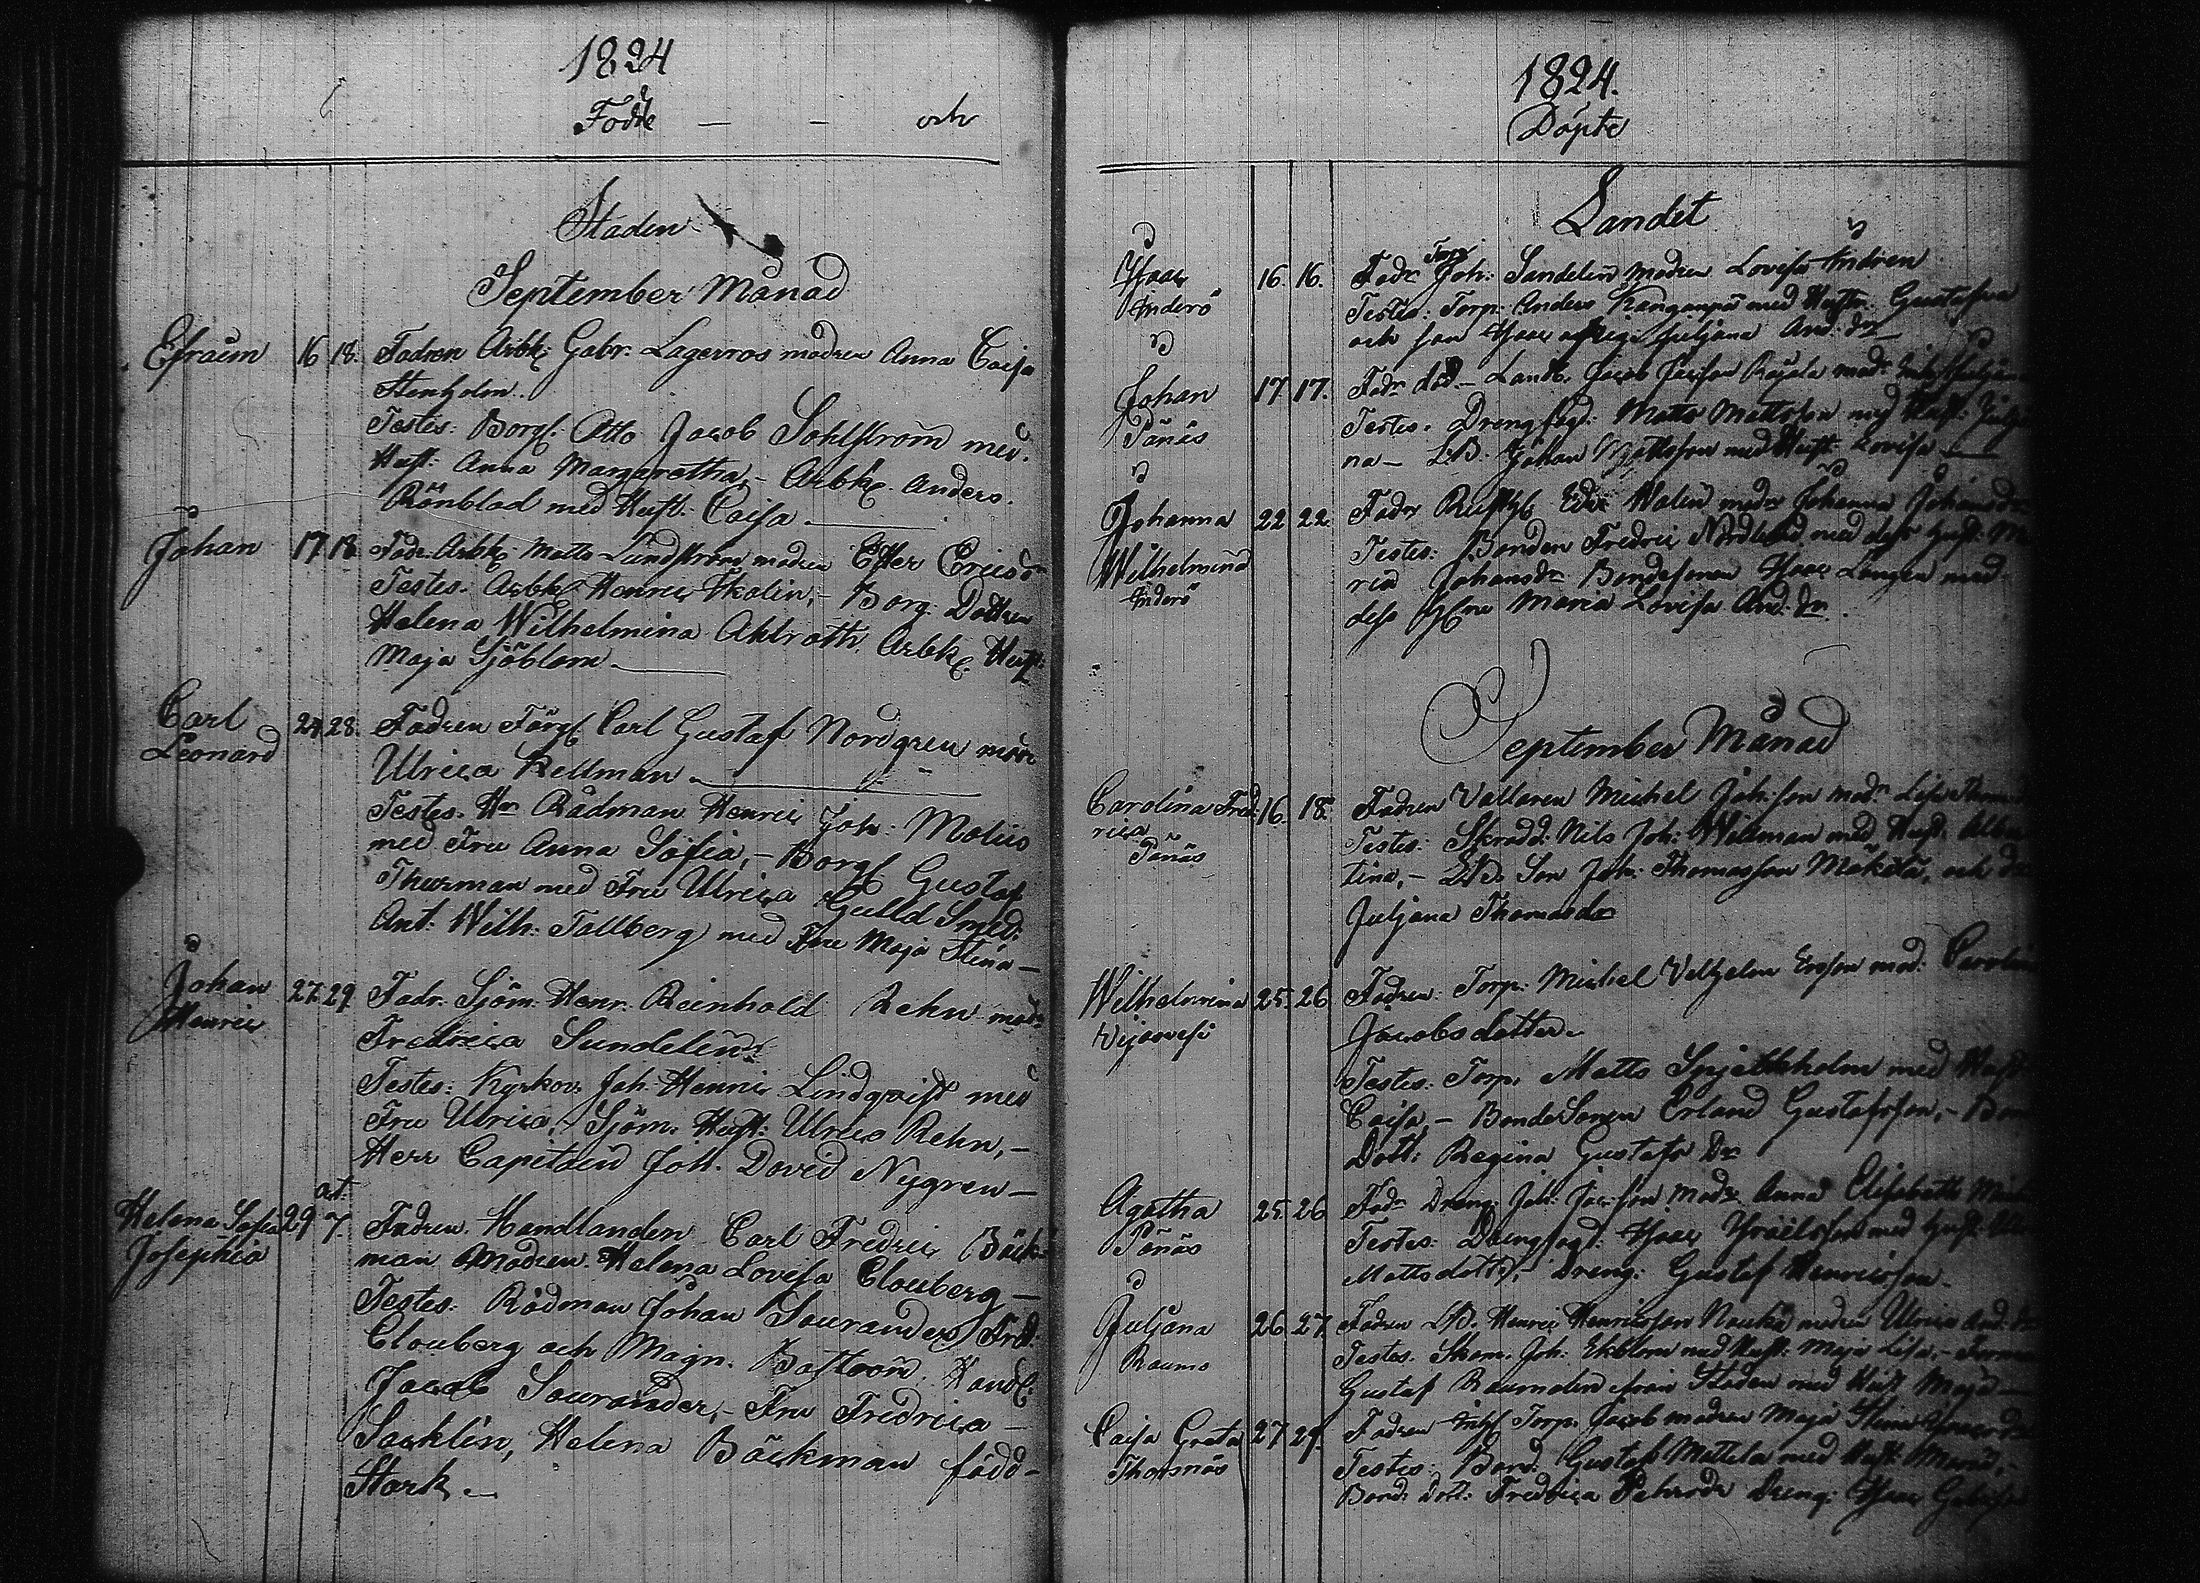 1824
Födde — — och
Staden
September Månad
Efraim 16 18. Fadren Arbk: Gabr. Lagerros modren Anna Caisa
Stenholm.
Testes: Borg: Otto Jacob Sohlström med
Hust: Anna Margaretha, - Arbk. Anders
Rönblad med Hust: Caisa
Johan 17 18. Fadr. Arbk: Matts Lundström modren Ester Ericsdr
Testes. Arbk Henric Skolin, - Borg. Dottren
Helena Wilhelmina Ahlroth. Arbk. Hust:
Maja Sjöblom
Carl 24 28. Fadren Färg. Carl Gustaf Nordgren modr
Leonard Ulrica Kellman
Testes. Hr Rådman Henric Joh: Moliis
med Fru Anna Sofia, - Borg. Gustaf
Thurman med Fru Ulrica Guld Smed:
Ant: Wilh: Tallberg med Fru Maja Stina -
Johan 27 29 Fadr. Sjöm. Henr. Reinhold Rehn modr
Henric Fredrica Sundelin
Testes: Kyrkov. Joh. Henric Lindqvist med
Fru Ulrica, Sjöm. Hust: Ulrica Rehn, -
Herr Capitain Joh. David Nygren -
oct.
Helena Sofia 29 7. Fadren Handlanden Carl Fredric Bäck-
Josephia man Modren Helena Lovisa Clouberg -
Testes: Rådman Johan Sourander, Fred.
Clouberg och Magn. Boström Handl:
Jacob Sourander, - Fru Fredrica -
Sacklin, Helena Bäckman född -
Stork. -
1824.
Döpte
Landet
Torp
Isaac 16. 16. Fadr Joh: Sandelin modren Lovisa Andren
Inderö Testes: Torp. Anders Kanganpä med Hustr. Gustafva
och son Isaac Juljana And: dr
Johan 17 17. Fadr död - Landb. Jacob Jacsson modr
Pänäs Testes. Drengfogd: Matts Mattsson med Hust: Julja
na - LB. Johan Mattsson med Hust. Lovisa
Johanna 22 22. Fadr Eric Walin modr Johanna Johansdr
Wilhelmina Testes: Bonden Fredric Nordlund med dess Hust: Ma
Inderö ria Johansdr Bondesonen Isaac Lången med
dess Maria Lovisa And. dr.
September Månad
Carolina Fred 16. 18. Fadren Vallaren Michel Joh:son modr Lisa
rica Testes: Skrädd: Nils Joh: Widman med Hust. Alber
Pänäs tina, - LB. Son Joh: Thomasson Mäkilä, och dr
Juljana Thomasdr
Wilhelmina 25. 26 Fadren: Torp: Michel Vilhelm Ersson mod: Carolina
Jacobsdotter.
Testes: Torp. Matts med Hust
Caisa, - BondeSonen Erland Gustafsson, - Bon
Dott: Regina Gustafs Dr
Agatha 25 26 Fadr Dreng Joh: Jacsson Modr Anna Elisabeth
Pänäs Testes: Drengfogd: Isaac Israelsson med Hust.
Mattsdotter, - Dreng: Gustaf Henricsson
Juljana 26 27 Fadren LB. Henric Henricsson modren Ulrica And. dr
Raumo Testes. Skom. Joh: Ekblom med Hust. Maja Lisa, -
Gustaf från Staden med Hust Maja -
Caisa Greta 27 29. Fadren Inh. Torp. Jacob modren Maja Stina
Thorsnäs Testes: Bond. Gustaf Mattila med Hust.
Bond: Dott: Fredrica Dreng: Isaac